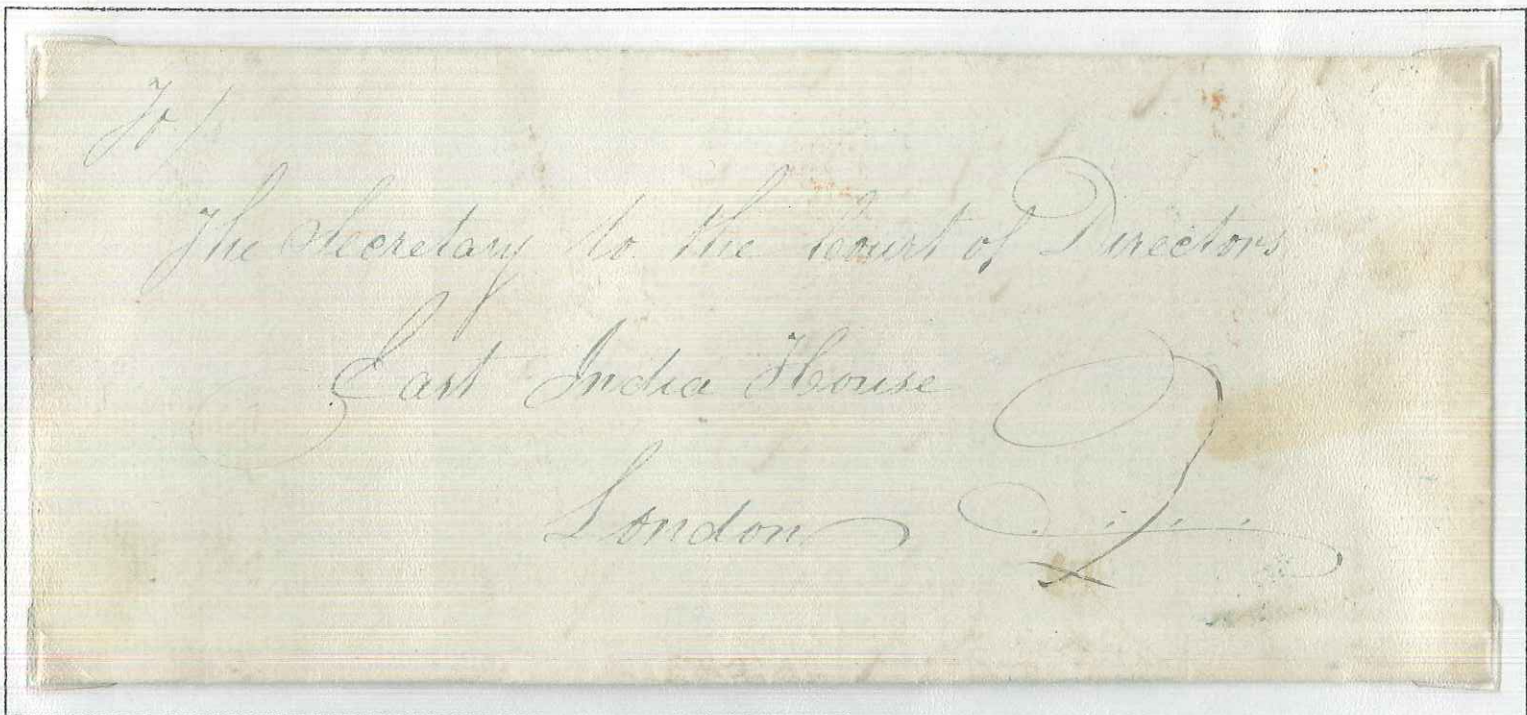 To/
The Secretary to the Court of Directors
East India House
London